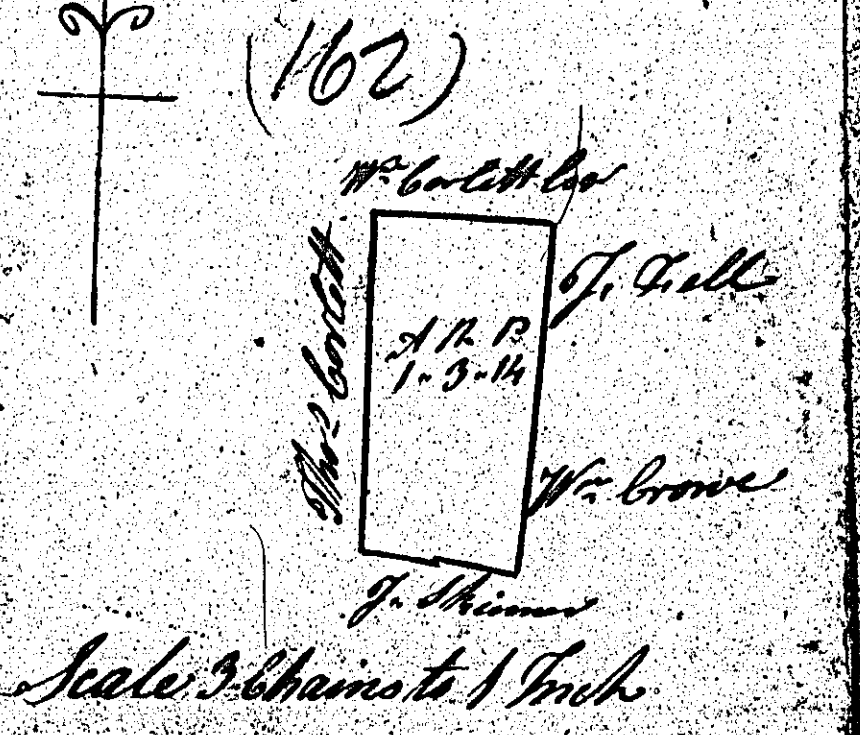 (162)
Wm Corlett Coo
Thos Corlett
J. Fell
A R P
1 - 3 - 14
Wm Crowe
J. Skinner
Scale 3 Chains to 1 Inch